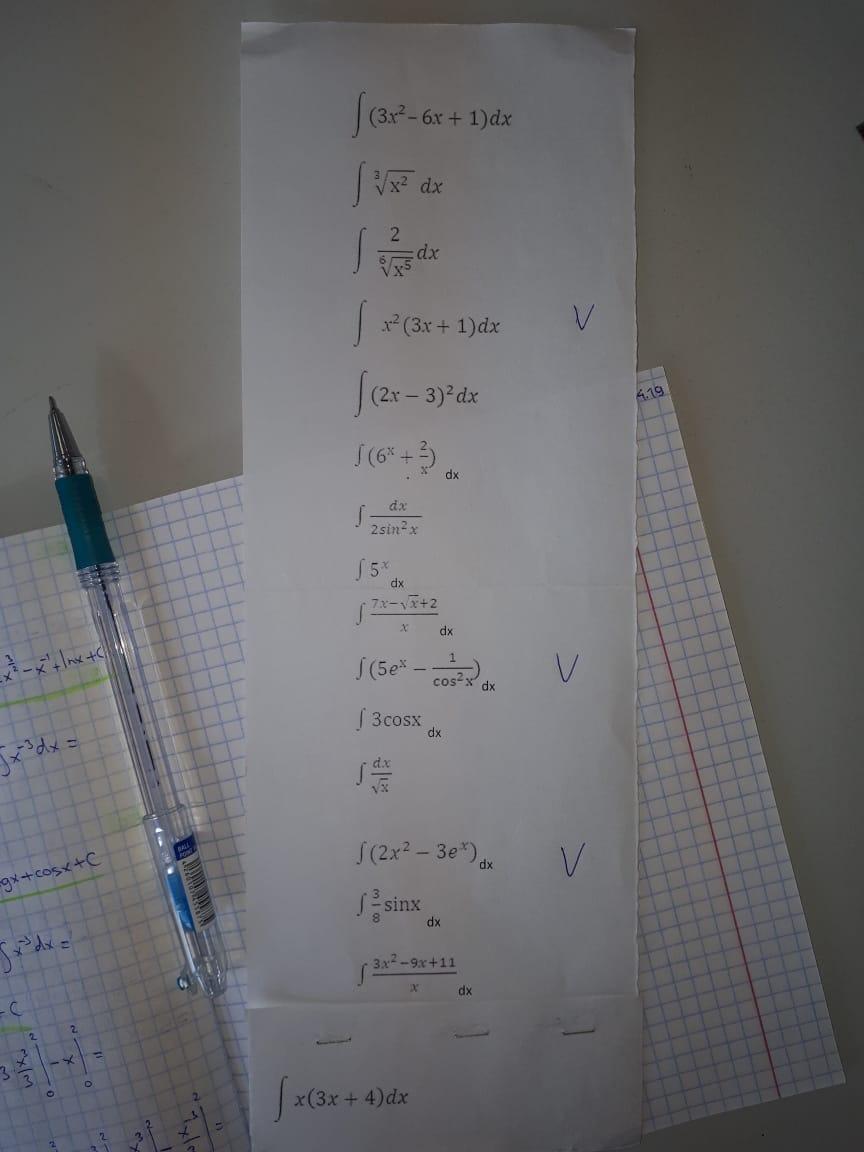 ∫(3x² - 6x + 1)dx
∫ ∛x² dx
∫ 2/⁶√x⁵ dx
∫ x²(3x + 1)dx V
∫(2x - 3)²dx
4.19
∫(6ˣ + 2/x) dx
∫ dx/2sin²x
∫ 5ˣ dx
∫ 7x-√x+2/x dx
∫(5eˣ - 1/cos²x) dx V
∫ 3cosx dx
∫ dx/√x
∫(2x² - 3eˣ) dx V
∫ 3/8 sinx dx
∫ 3x²-9x+11/x dx
∫ x(3x + 4)dx
+ lnx + C
∫x⁻³dx =
BALL POINT
gx + cosx + C
∫x⁻³dx =
- C
3·x³/3|²₀ - x|²₀ =